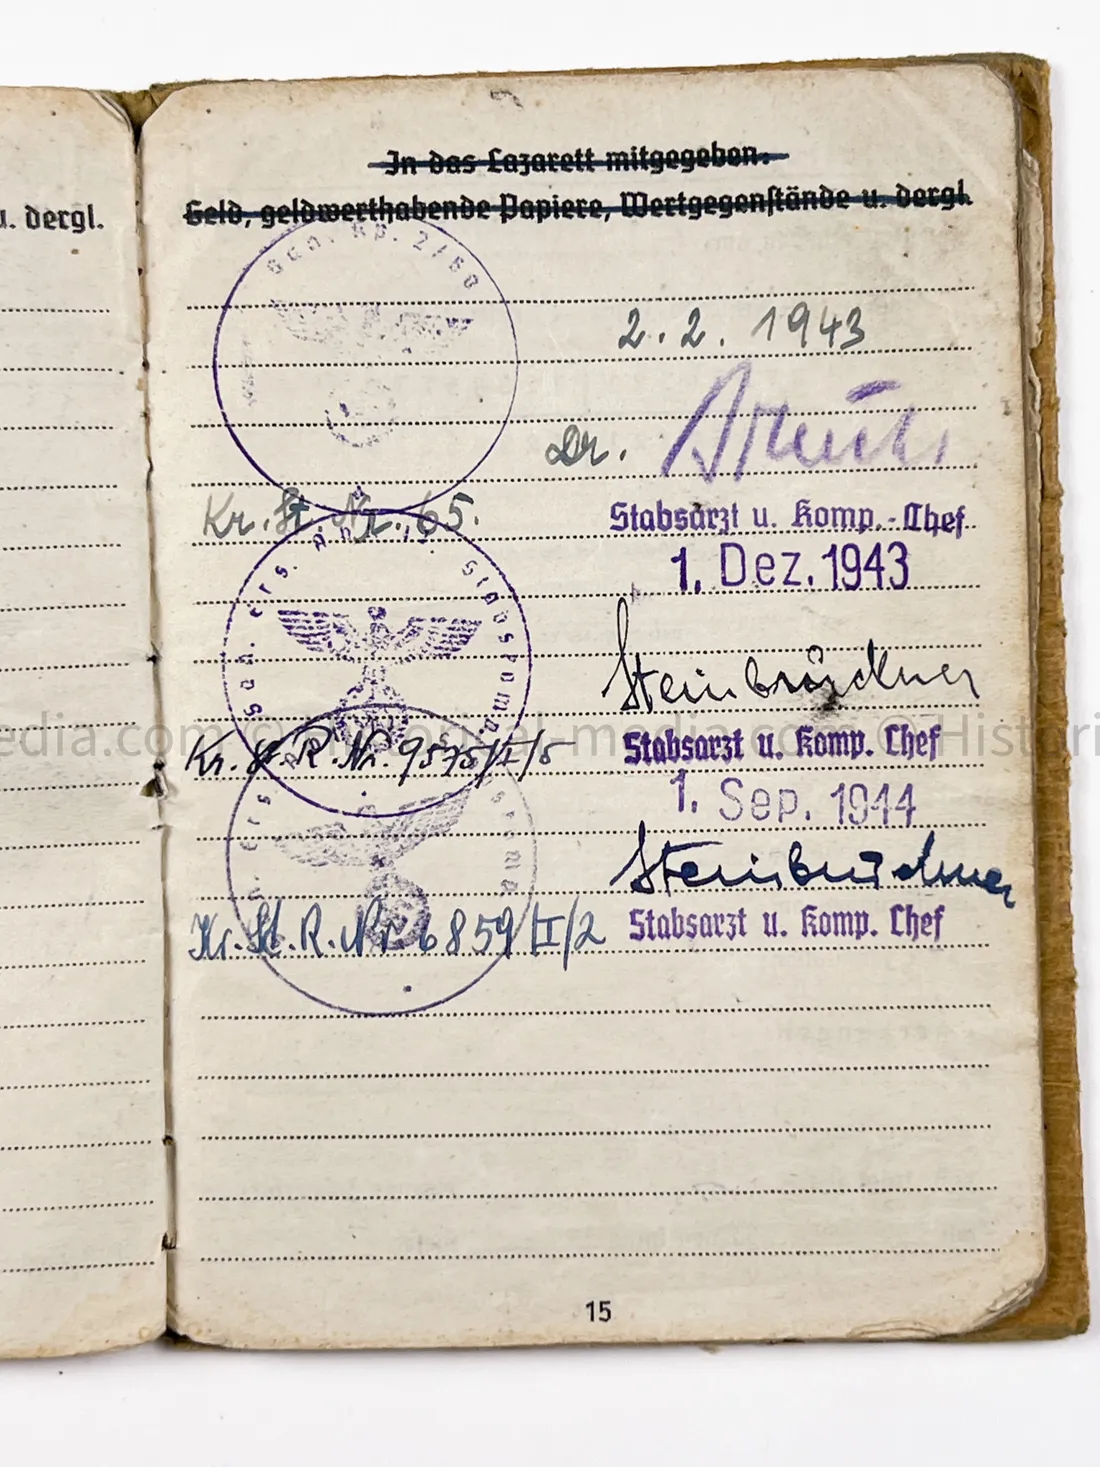 u. dergl.
In das Lazarett mitgegeben:
Geld, geldwerthabende Papiere, Wertgegenstände u. dergl.
San. Kp. 2/60
2.2.1943
Dr.
Kr. St. Nr. 65.
Stabsarzt u. Komp.-Chef
1. Dez. 1943
San. Ers. Stabskomp.
Steinbrückner
Kr. St. R. Nr. 9575/I/5
Stabsarzt u. Komp. Chef
1. Sep. 1944
Steinbrückner
Kr. St. R. Nr. 6859/II/2
Stabsarzt u. Komp. Chef
15